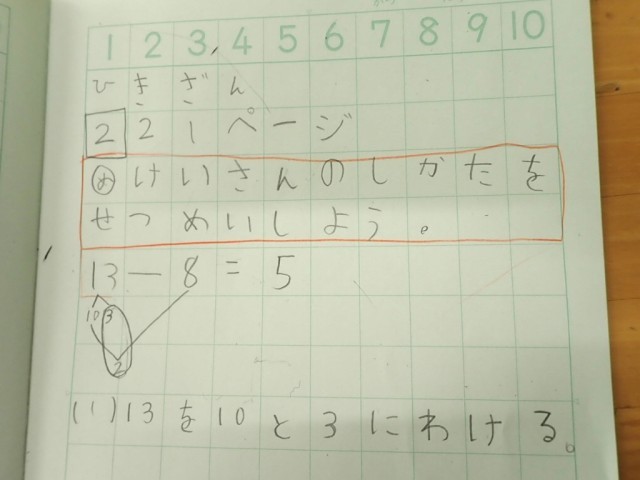 1 2 3 4 5 6 7 8 9 10
ひきざん
2 21ページ
めけいさんのしかたを
せつめいしよう。
13-8=5
10 3
2
(1)13を10と3にわける。